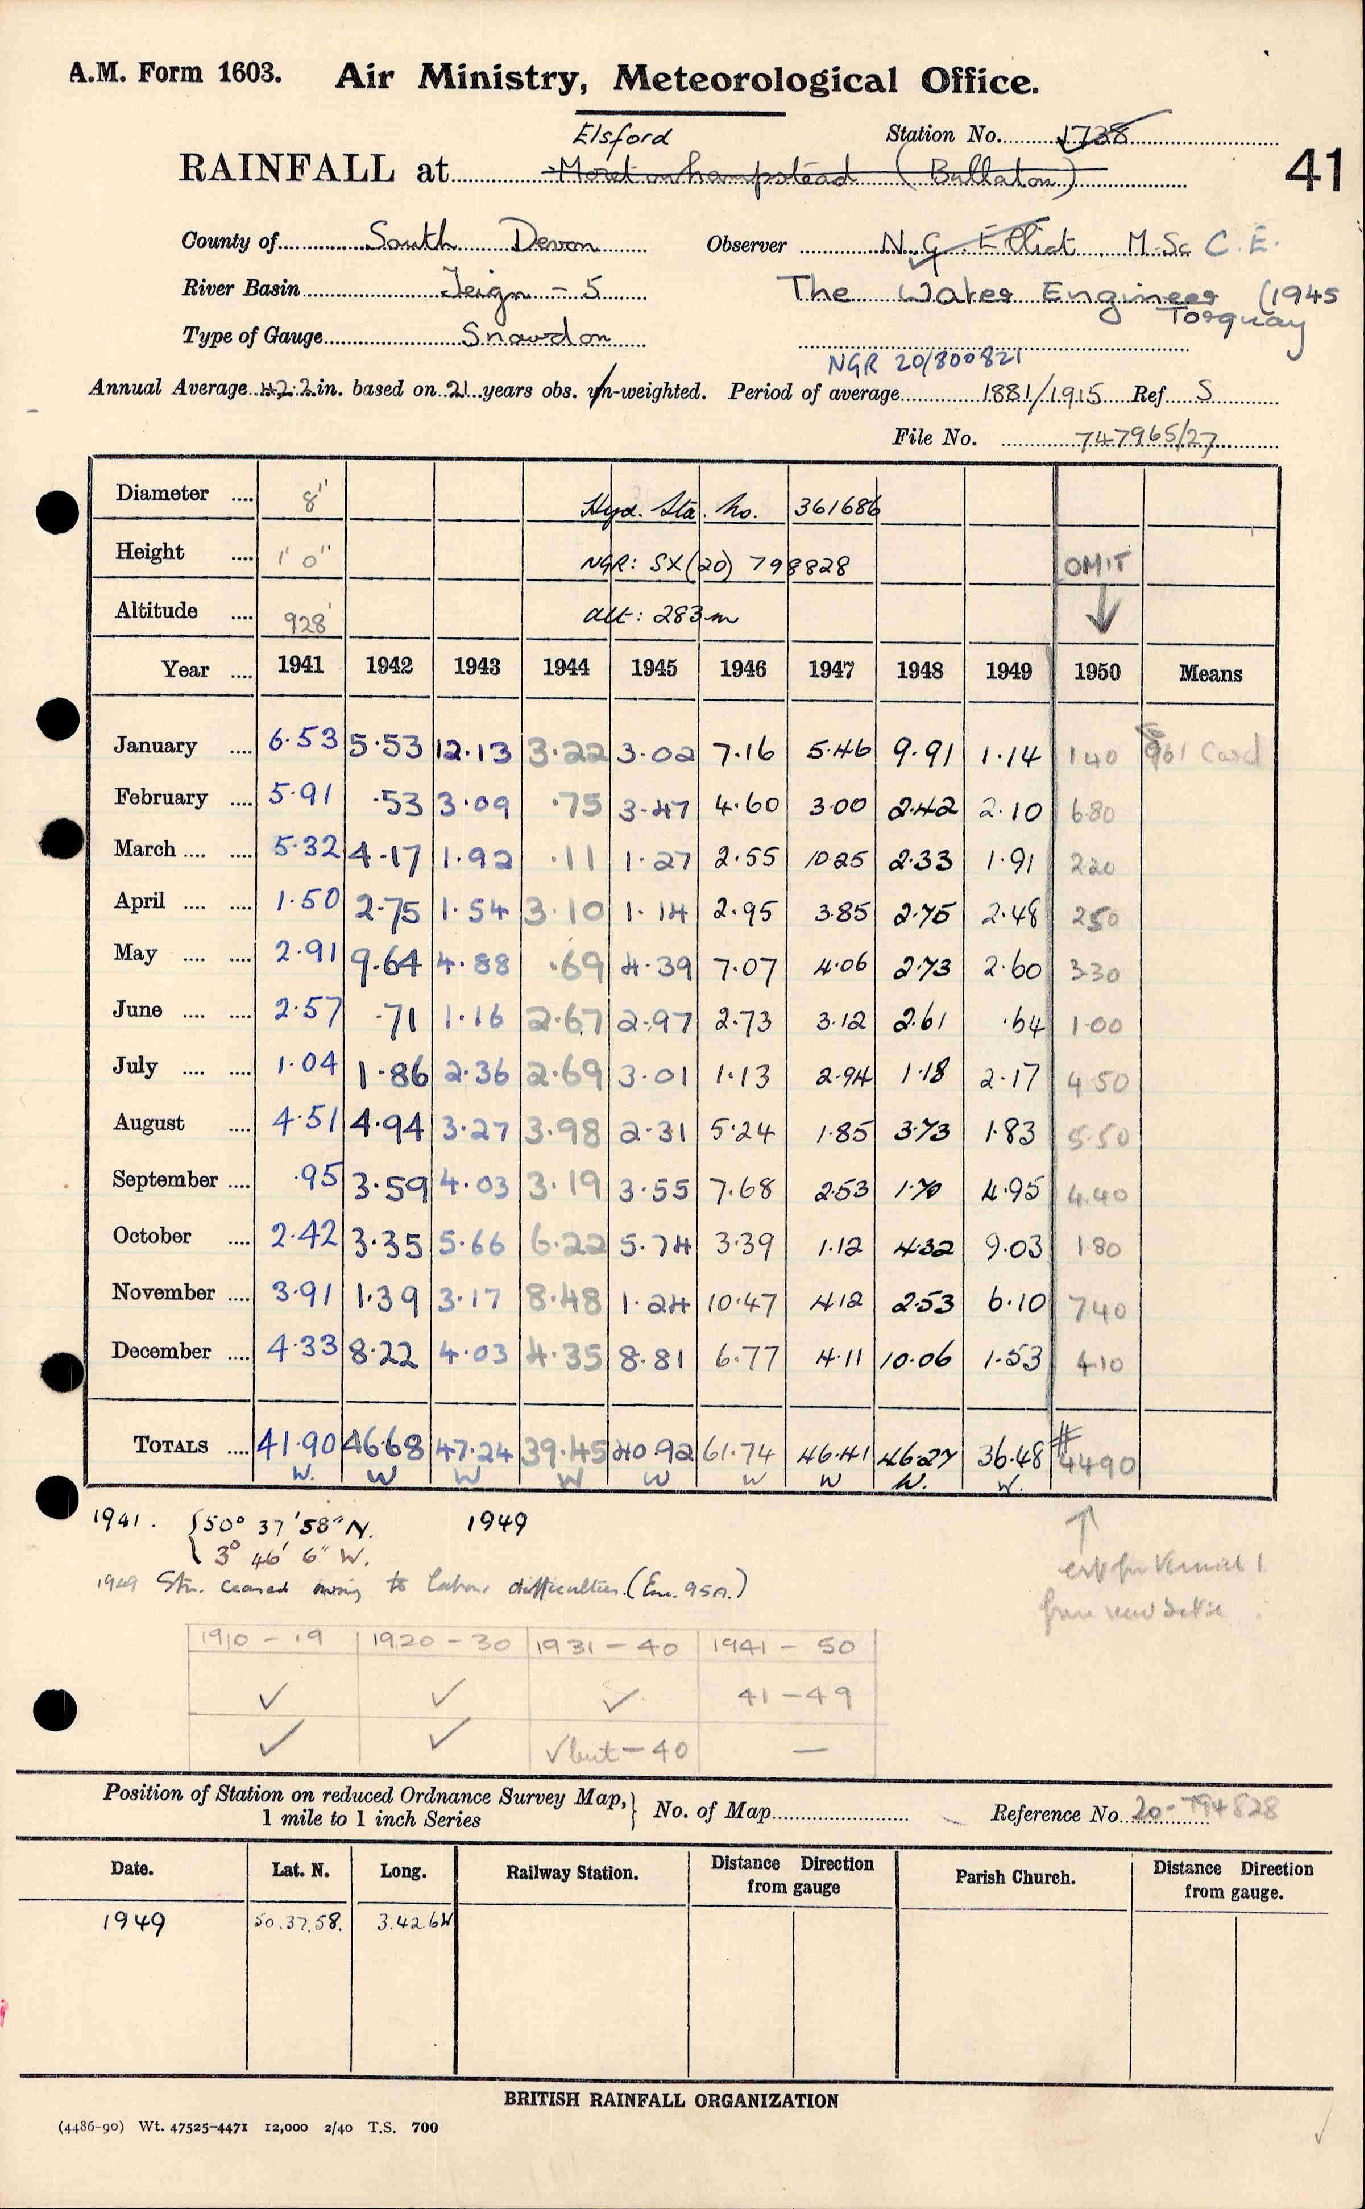 A.M. Form 1603. Air Ministry, Meteorological Office.
Elsford
Station No. 1738
RAINFALL at Moretonhampstead (Bullaton)
41
County of South Devon Observer N.G. Elliot M.Sc C.E.
River Basin Teign - 5 The Water Engineer (1945
Torquay
Type of Gauge Snowdon
NGR 20/800821
Annual Average 42.2 in. based on 21 years obs. un-weighted. Period of average 1881/1915 Ref S
File No. 747965/27
Diameter .... 8" Hyd. Sta. No. 361686
Height .... 1' 0" NGR: SX(20) 798828 OMIT
Altitude .... 928' alt: 283m
Year .... 1941 1942 1943 1944 1945 1946 1947 1948 1949 1950 Means
January .... 6.53 5.53 12.13 3.22 3.02 7.16 5.46 9.91 1.14 140 961 Card
February .... 5.91 .53 3.09 .75 3.47 4.60 3.00 2.42 2.10 6.80
March .... .... 5.32 4.17 1.92 .11 1.27 2.55 10 25 2.33 1.91 220
April .... .... 1.50 2.75 1.54 3.10 1.14 2.95 3.85 2.75 2.48 250
May .... .... 2.91 9.64 4.88 .69 4.39 7.07 4.06 2.73 2.60 3.30
June .... .... 2.57 .71 1.16 2.67 2.97 2.73 3.12 2.61 .64 1.00
July .... .... 1.04 1.86 2.36 2.69 3.01 1.13 2.94 1.18 2.17 4.50
August .... 4.51 4.94 3.27 3.98 2.31 5.24 1.85 3.73 1.83 5.50
September .... .95 3.59 4.03 3.19 3.55 7.68 2.53 1.70 4.95 4.40
October .... 2.42 3.35 5.66 6.22 5.74 3.39 1.12 4.32 9.03 1.80
November .... 3.91 1.39 3.17 8.48 1.24 10.47 4.12 2.53 6.10 7.40
December .... 4.33 8.22 4.03 4.35 8.81 6.77 4.11 10.06 1.53 4.10
TOTALS .... 41.90 46.68 47.24 39.45 40.92 61.74 46.41 46.27 36.48 # 4490
W. W W W W W W W. W.
1941. {50° 37' 58" N. 1949
3° 46' 6" W.
1949 Stn. ceased owing to labour difficulties. (Enc. 95A.)
1910 - 19 1920 - 30 1931 - 40 1941 - 50
✓ ✓ ✓ 41 - 49
✓ ✓ ✓ but - 40 —
Position of Station on reduced Ordnance Survey Map,} No. of Map Reference No. 20-794828
1 mile to 1 inch Series
Date. Lat. N. Long. Railway Station. Distance Direction from gauge Parish Church. Distance Direction from gauge.
1949 50.37.58. 3.42 6W
BRITISH RAINFALL ORGANIZATION
(4486-90) Wt. 47525-4471 12,000 2/40 T.S. 700